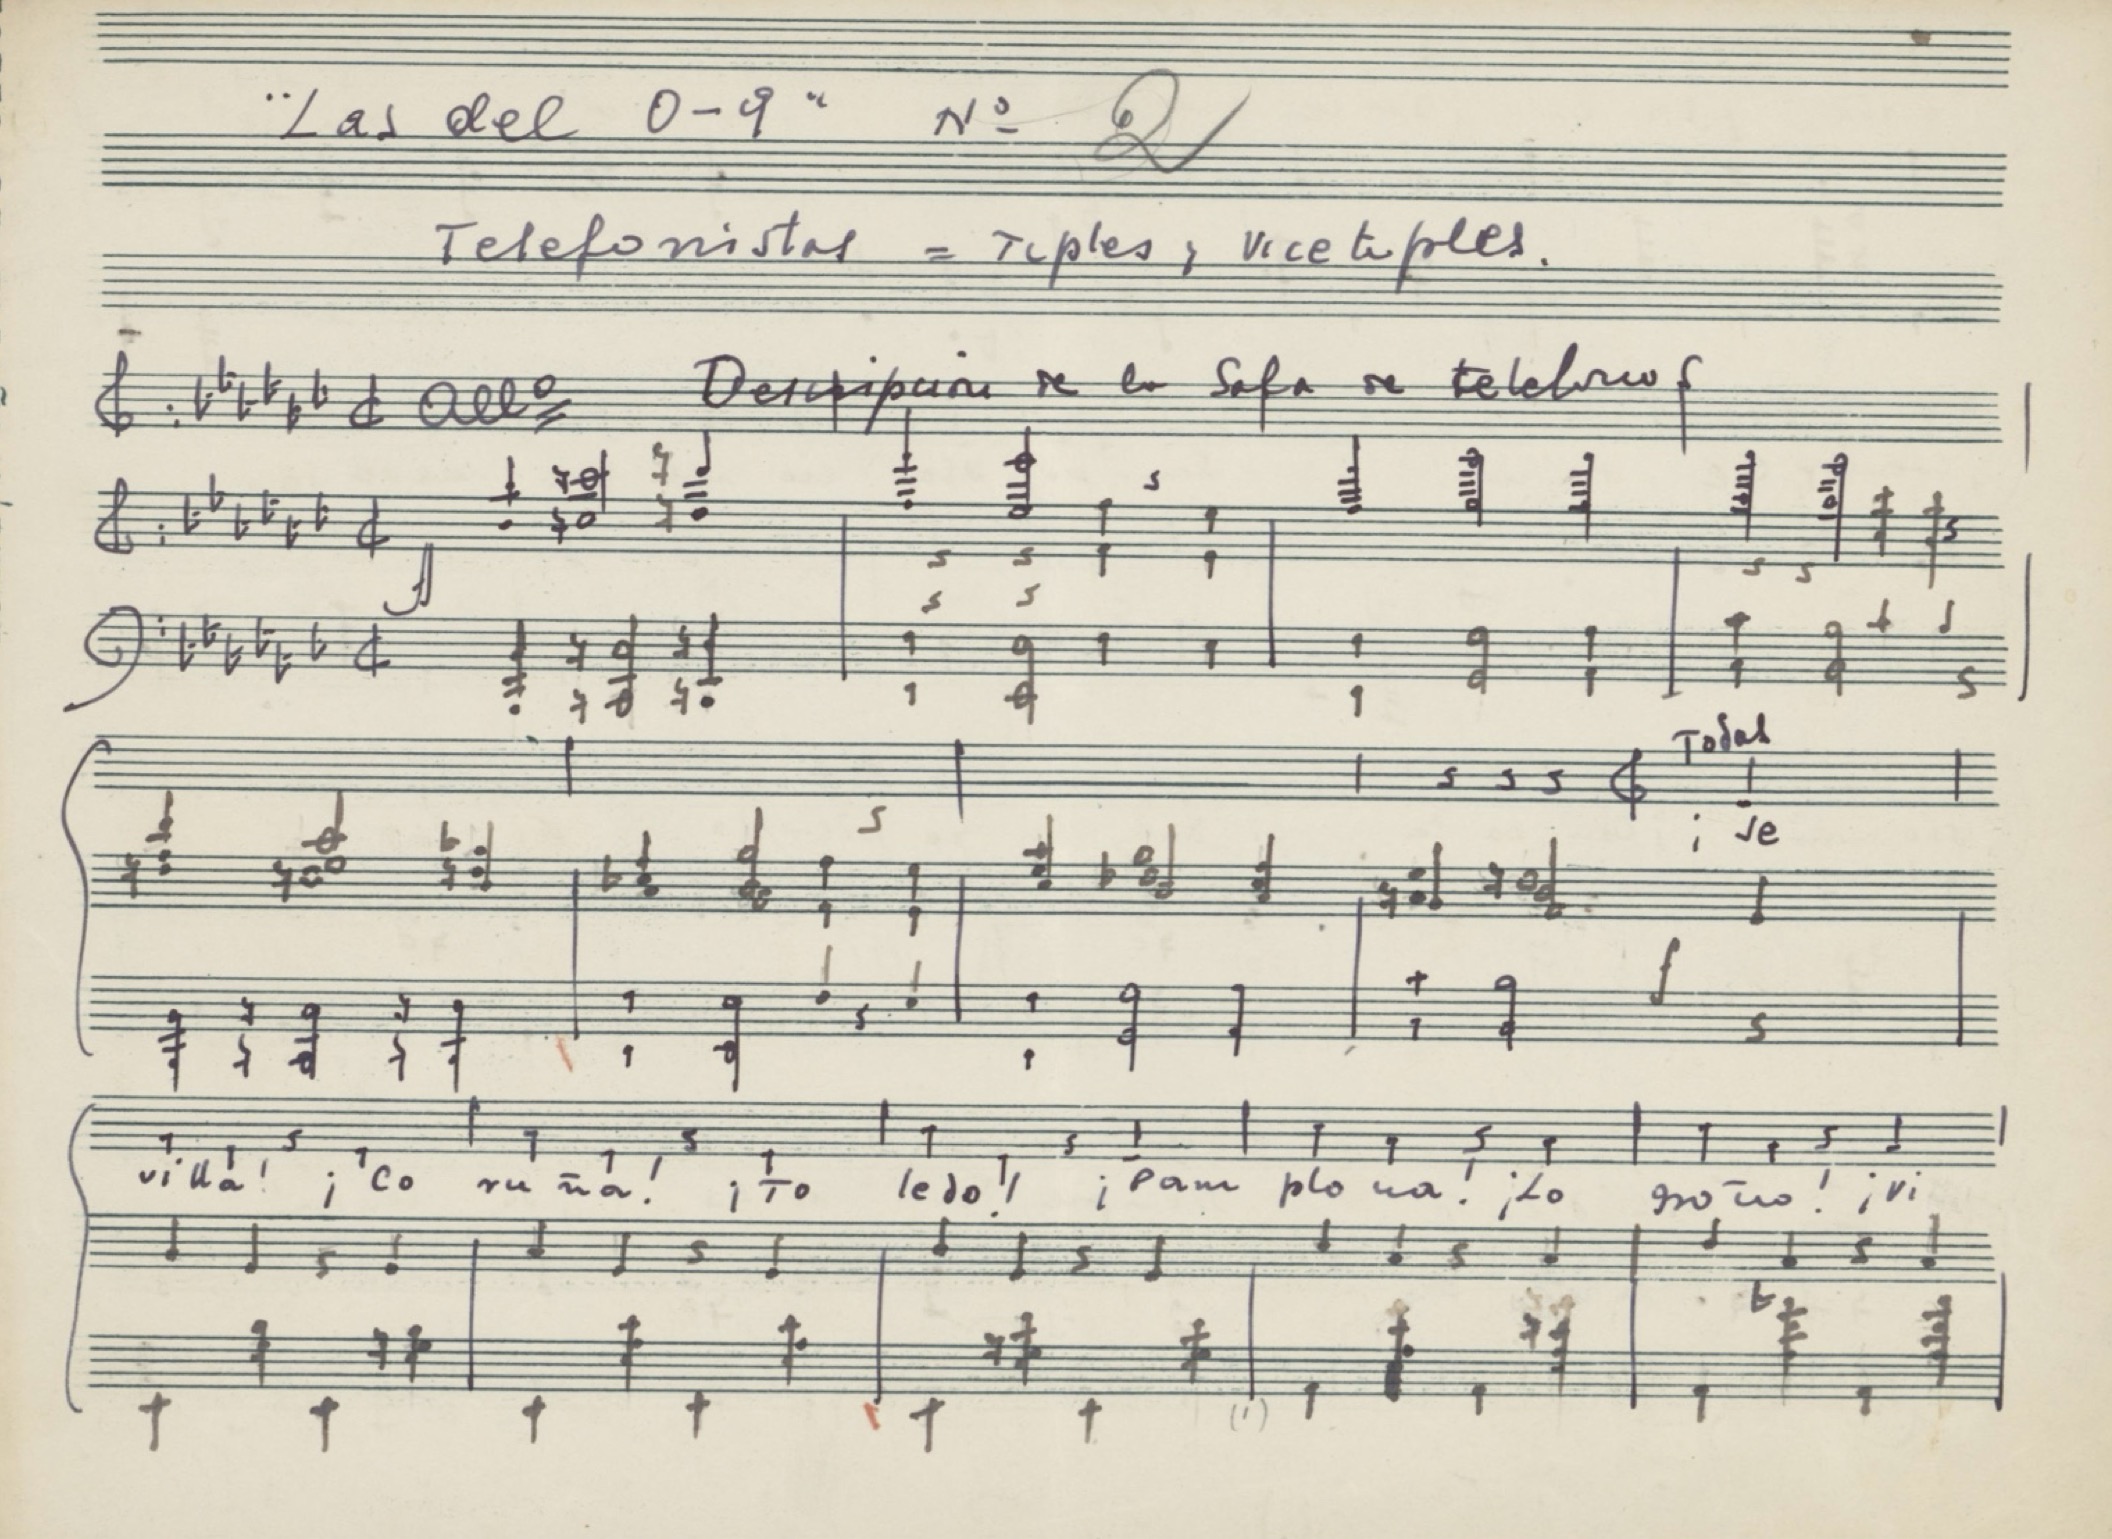 "Las del 0-9" Nº 2
Telefonistas = Tiples y Vicetiples.
Allº Descripcion de la Sala de telefonos
ff
Todas
¡ Se
f
villa! ¡Co ru ña! ¡To ledo! ¡Pam plo na! ¡Lo groño! ¡Vi
(1)